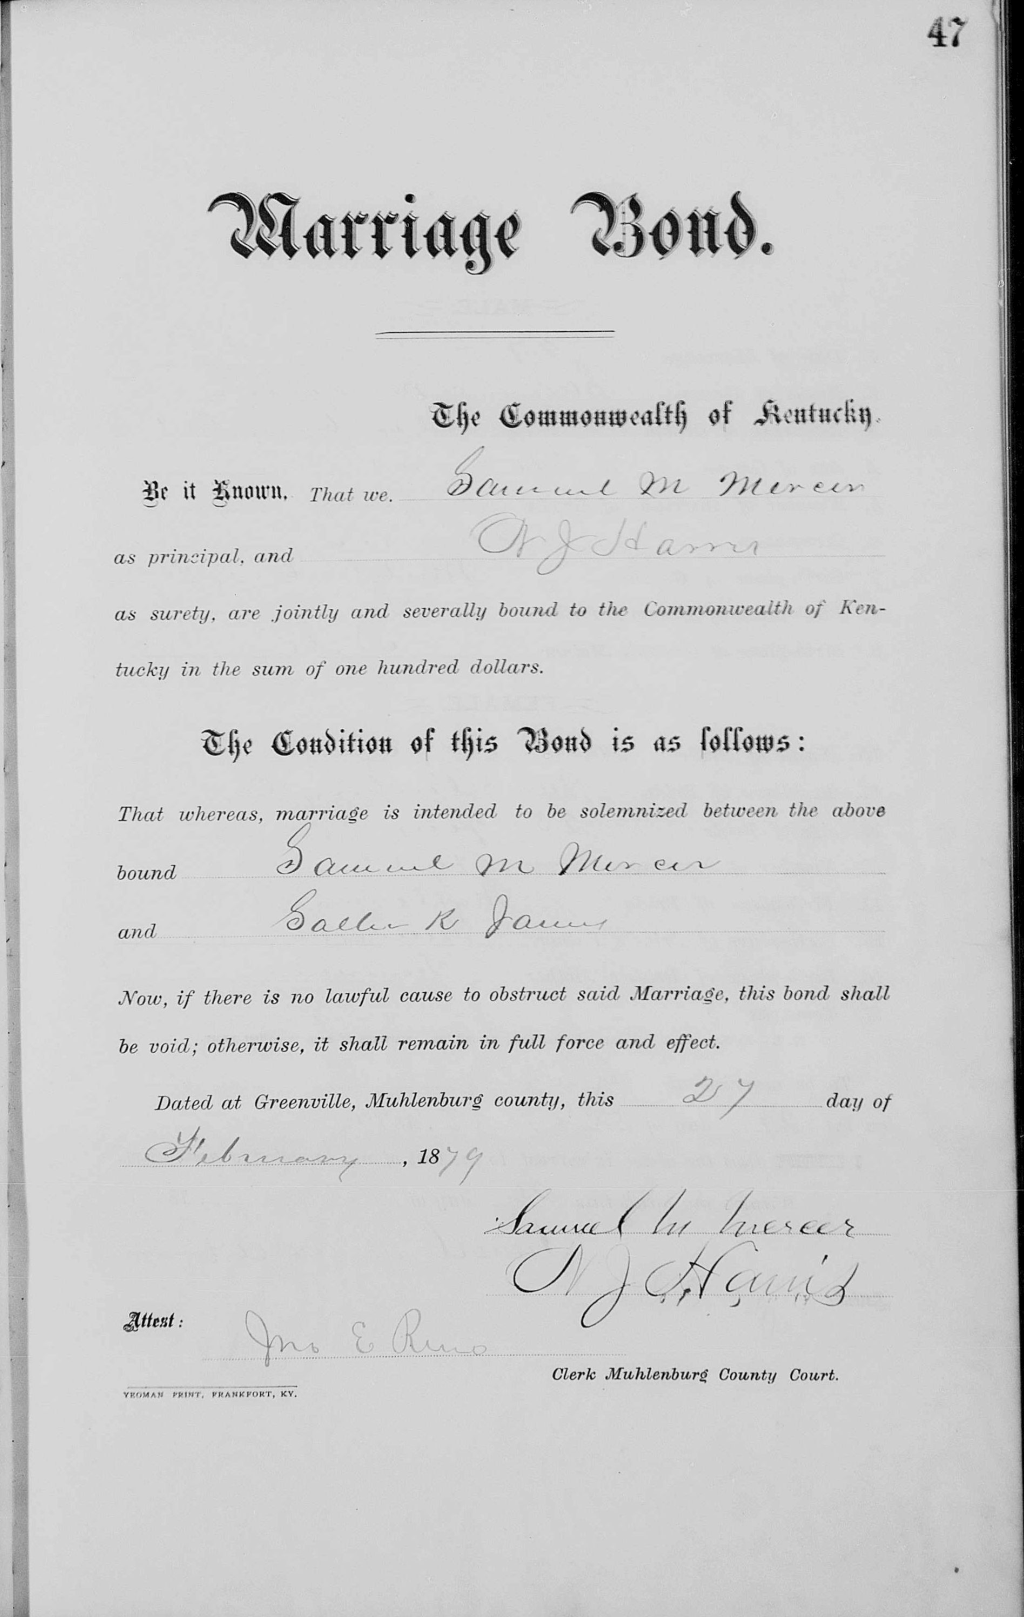 47
Marriage Bond.
The Commonwealth of Kentucky.
Be it Known, That we, Samuel M Mercer
as principal, and N J Harris
as surety, are jointly and severally bound to the Commonwealth of Ken-
tucky in the sum of one hundred dollars.
The Condition of this Bond is as follows:
That whereas, marriage is intended to be solemnized between the above
bound Samuel M Mercer
and K
Now, if there is no lawful cause to obstruct said Marriage, this bond shall
be void; otherwise, it shall remain in full force and effect.
Dated at Greenville, Muhlenburg county, this 27 day of
February, 1879
Samuel M Mercer
N J Harris
Attest:
Jno E Reno
Clerk Muhlenburg County Court.
YEOMAN PRINT, FRANKFORT, KY.